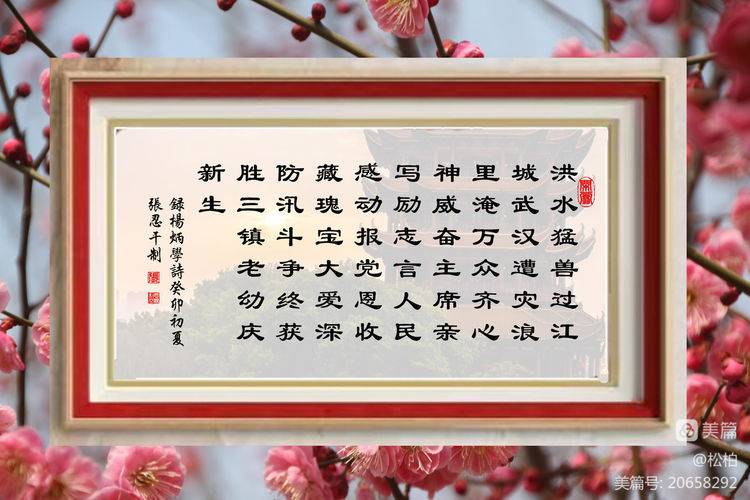 洪水猛兽过江
城武汉遭灾浪
里淹万众齐心
神威奋主席亲
写励志言人民
感动报党恩收
藏瑰宝大爱深
防汛斗争终获
胜三镇老幼庆
新生
録楊炳學詩癸卯初夏
張忍千制
美篇
@松柏
美篇号: 20658292